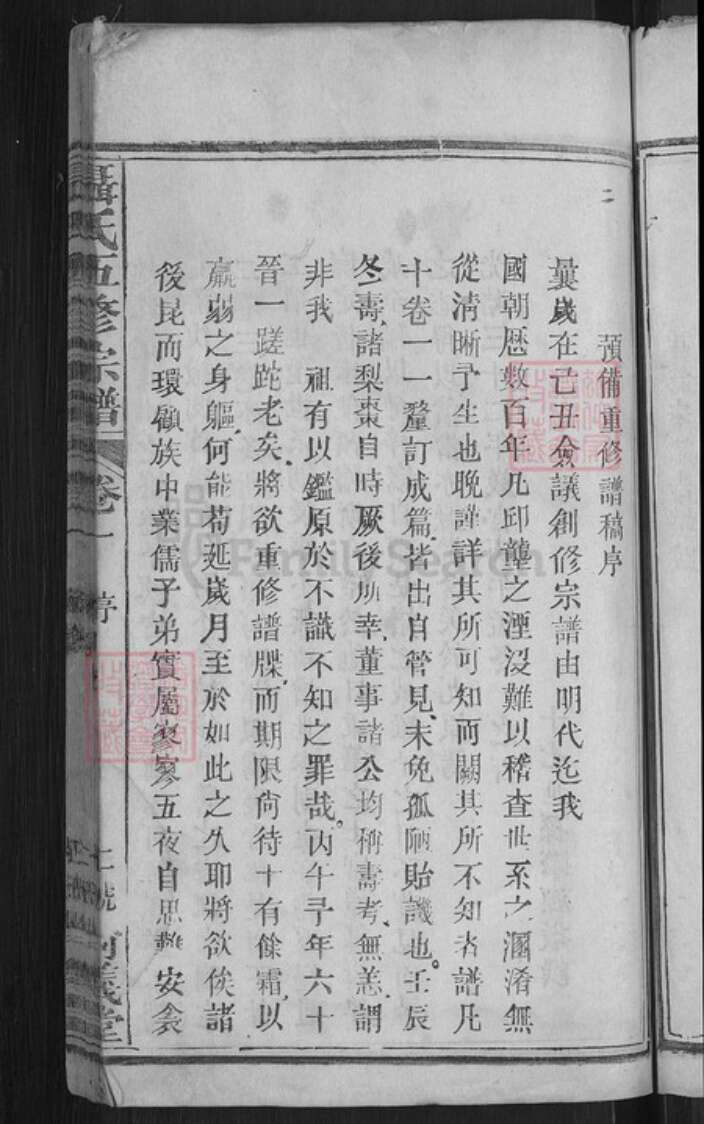 二
預備重修譜稿序
曩歲在己丑僉議創修宗譜由明代迄我
國朝歷數百年凡邱壟之湮沒難以稽查世系之溷淆無
從清晰予生也晚謹詳其所可知而闕其所不知者譜凡
十卷一一釐訂成篇皆出自管見未免孤陋貽譏也壬辰
冬壽諸梨棗自時厥後所幸董事諸公均稱壽考無恙謂
非我 祖有以鑑原於不識不知之罪哉丙午予年六十
晉一蹉跎老矣將欲重修譜牒而期限尚待十有餘霜以
羸弱之身軀何能苟延歲月至於如此之久耶將欲俟諸
後昆而環顧族中業儒子弟實屬寥寥五夜自思難安衾
聶氏五修宗譜 卷一 序
FamilySearch